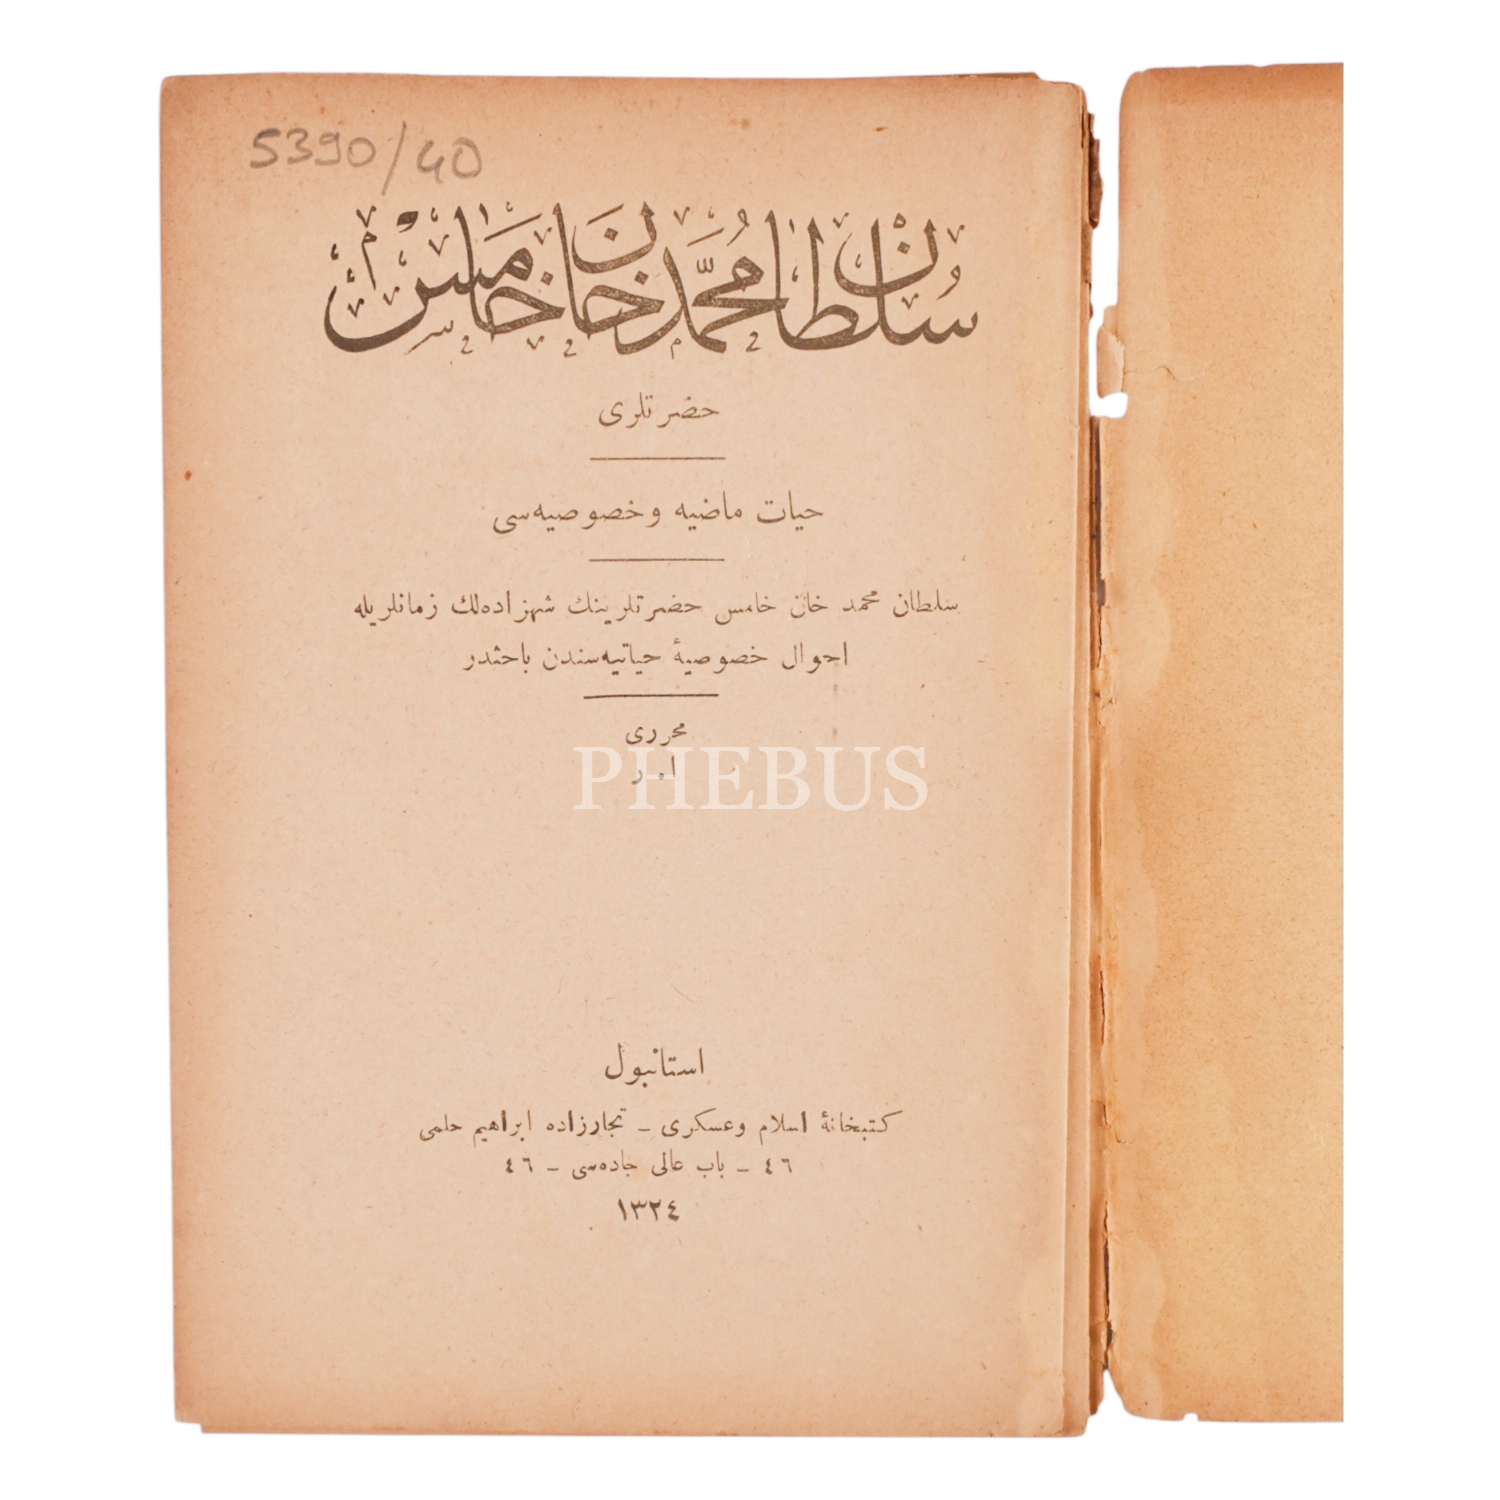 5390/40
سلطان محمد خان خامس
حضرتلری
حیات ماضیه وخصوصیه‌سی
سلطان محمد خان خامس حضرتلرینك شهزاده‌لك زمانلریله
احوال خصوصیهٔ حیاتیه‌سندن باحثدر
محرری
ا . ر
PHEBUS
استانبول
كتبخانهٔ اسلام وعسكری – تجارزاده ابراهیم حلمی
٤٦ – باب عالی جاده‌سی – ٤٦
١٣٢٤